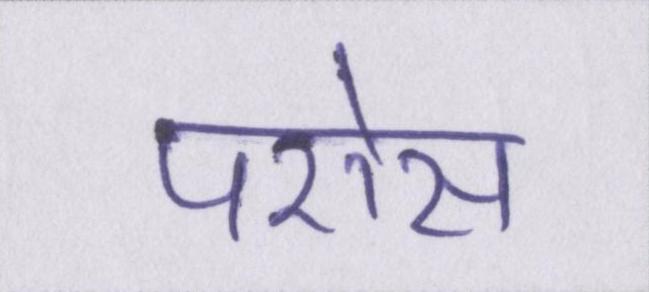 परोस